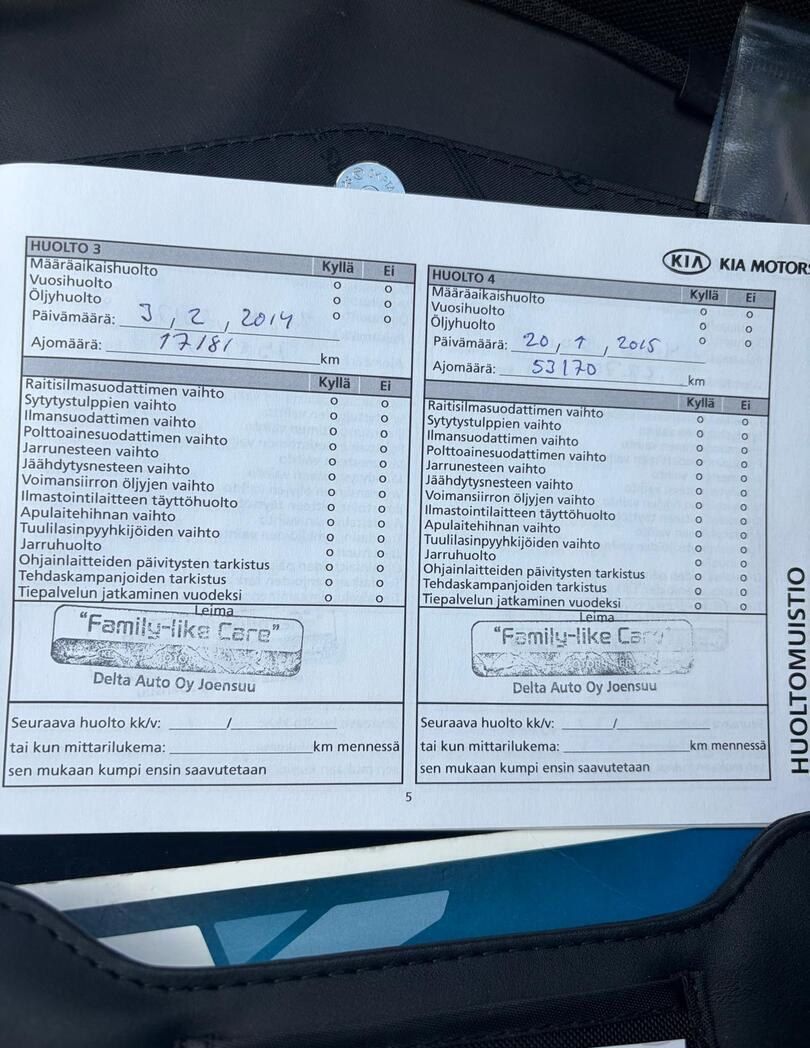 KIA KIA MOTORS
HUOLTO 3
Kyllä Ei
Määräaikaishuolto o o
Vuosihuolto o o
Öljyhuolto o o
Päivämäärä: 3 / 2 , 2014
Ajomäärä: 17181 km
Kyllä Ei
Raitisilmasuodattimen vaihto o o
Sytytystulppien vaihto o o
Ilmansuodattimen vaihto o o
Polttoainesuodattimen vaihto o o
Jarrunesteen vaihto o o
Jäähdytysnesteen vaihto o o
Voimansiirron öljyjen vaihto o o
Ilmastointilaitteen täyttöhuolto o o
Apulaitehihnan vaihto o o
Tuulilasinpyyhkijöiden vaihto o o
Jarruhuolto o o
Ohjainlaitteiden päivitysten tarkistus o o
Tehdaskampanjoiden tarkistus o o
Tiepalvelun jatkaminen vuodeksi o o
Leima
"Family-like Care"
Delta Auto Oy Joensuu
Seuraava huolto kk/v: ______/__________
tai kun mittarilukema: ______________ km mennessä
sen mukaan kumpi ensin saavutetaan
HUOLTO 4
Kyllä Ei
Määräaikaishuolto o o
Vuosihuolto o o
Öljyhuolto o o
Päivämäärä: 20 , 1 , 2015
Ajomäärä: 53170 km
Kyllä Ei
Raitisilmasuodattimen vaihto o o
Sytytystulppien vaihto o o
Ilmansuodattimen vaihto o o
Polttoainesuodattimen vaihto o o
Jarrunesteen vaihto o o
Jäähdytysnesteen vaihto o o
Voimansiirron öljyjen vaihto o o
Ilmastointilaitteen täyttöhuolto o o
Apulaitehihnan vaihto o o
Tuulilasinpyyhkijöiden vaihto o o
Jarruhuolto o o
Ohjainlaitteiden päivitysten tarkistus o o
Tehdaskampanjoiden tarkistus o o
Tiepalvelun jatkaminen vuodeksi o o
Leima
"Family-like Care"
Delta Auto Oy Joensuu
Seuraava huolto kk/v: ______/__________
tai kun mittarilukema: ____________ km mennessä
sen mukaan kumpi ensin saavutetaan
5
HUOLTOMUISTIO